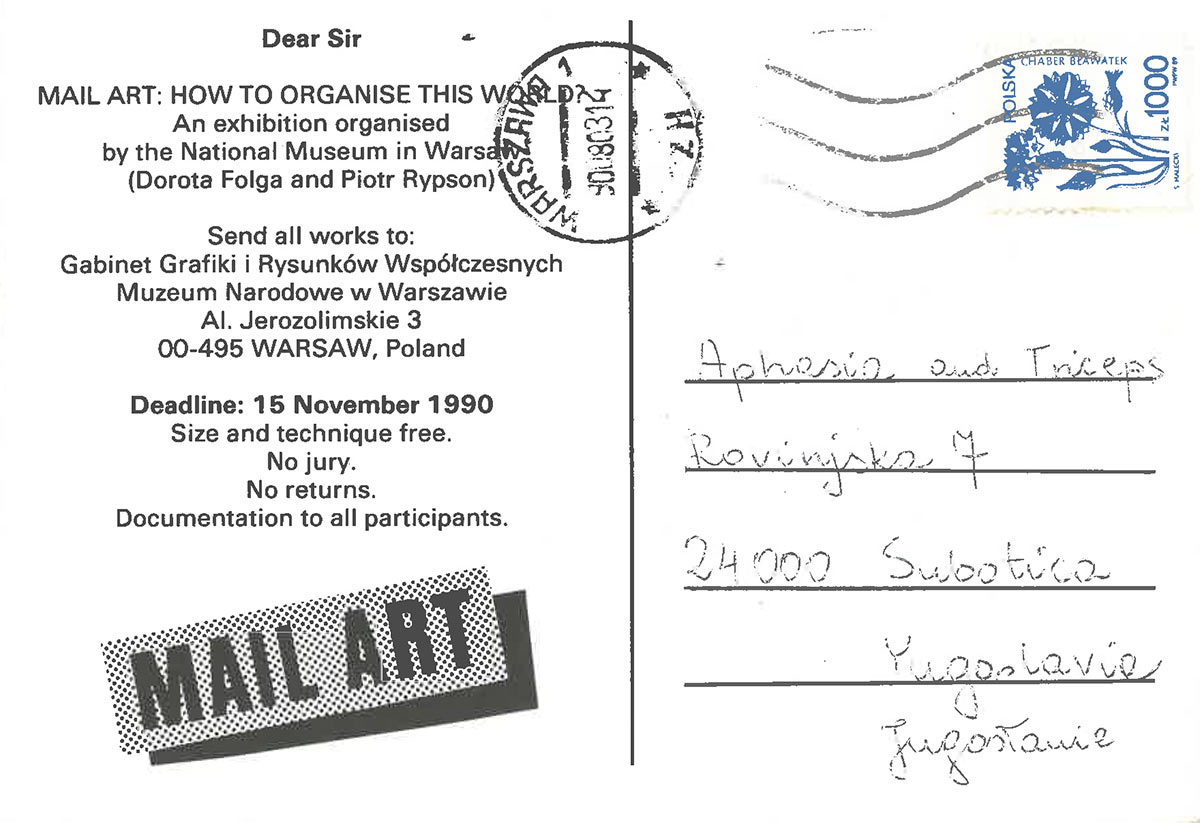 Dear Sir
MAIL ART: HOW TO ORGANISE THIS WORLD?
An exhibition organised
by the National Museum in Warsaw
(Dorota Folga and Piotr Rypson)
Send all works to:
Gabinet Grafiki i Rysunków Współczesnych
Muzeum Narodowe w Warszawie
Al. Jerozolimskie 3
00-495 WARSAW, Poland
Deadline: 15 November 1990
Size and technique free.
No jury.
No returns.
Documentation to all participants.
MAIL ART
WARSZAWA 1
POLSKA
CHABER BŁAWATEK
ZŁ 1000
S. MAŁECKI
Aphasia and Triceps
Rovinjska 7
24000 Subotica
Yugoslavia
Jugosławie